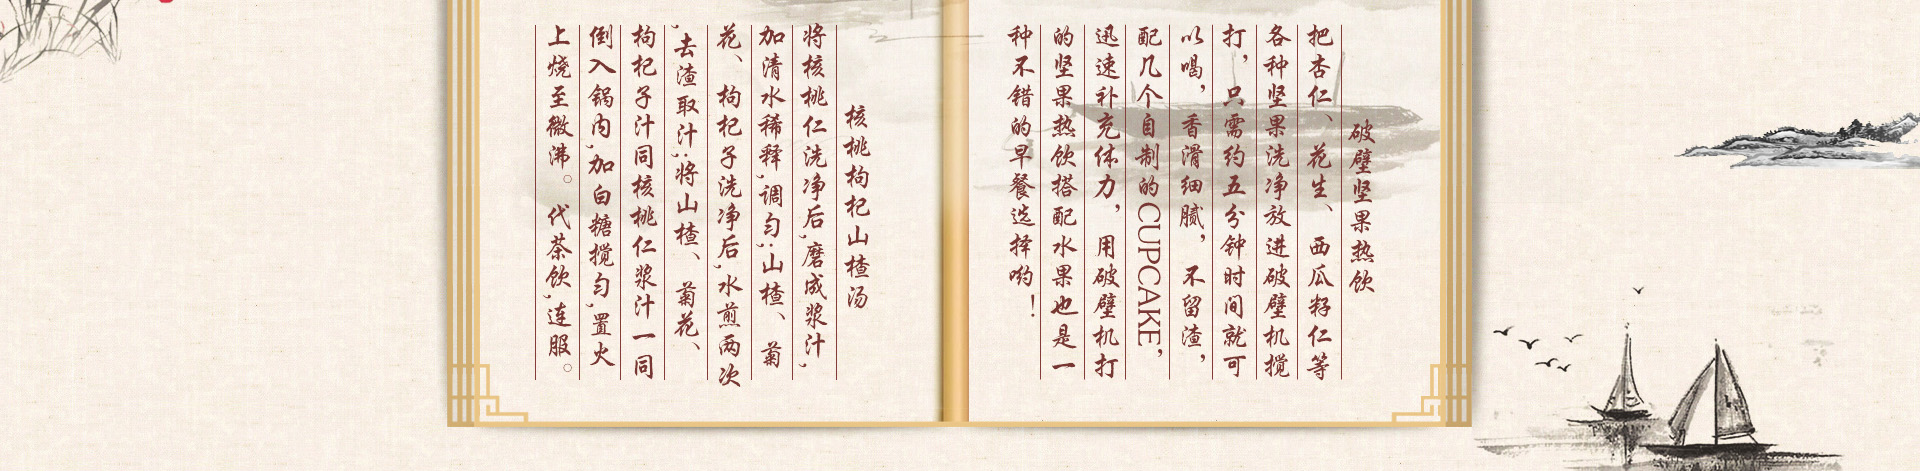 破壁坚果热饮
把杏仁、花生、西瓜籽仁等
各种坚果洗净放进破壁机搅
打，只需约五分钟时间就可
以喝，香滑细腻，不留渣，
配几个自制的CUPCAKE，
迅速补充体力，用破壁机打
的坚果热饮搭配水果也是一
种不错的早餐选择哟！
核桃枸杞山楂汤
将核桃仁洗净后,磨成浆汁,
加清水稀释,调匀;山楂、菊
花、枸杞子洗净后,水煎两次
,去渣取汁;将山楂、菊花、
枸杞子汁同核桃仁浆汁一同
倒入锅内,加白糖搅匀,置火
上烧至微沸。代茶饮,连服。